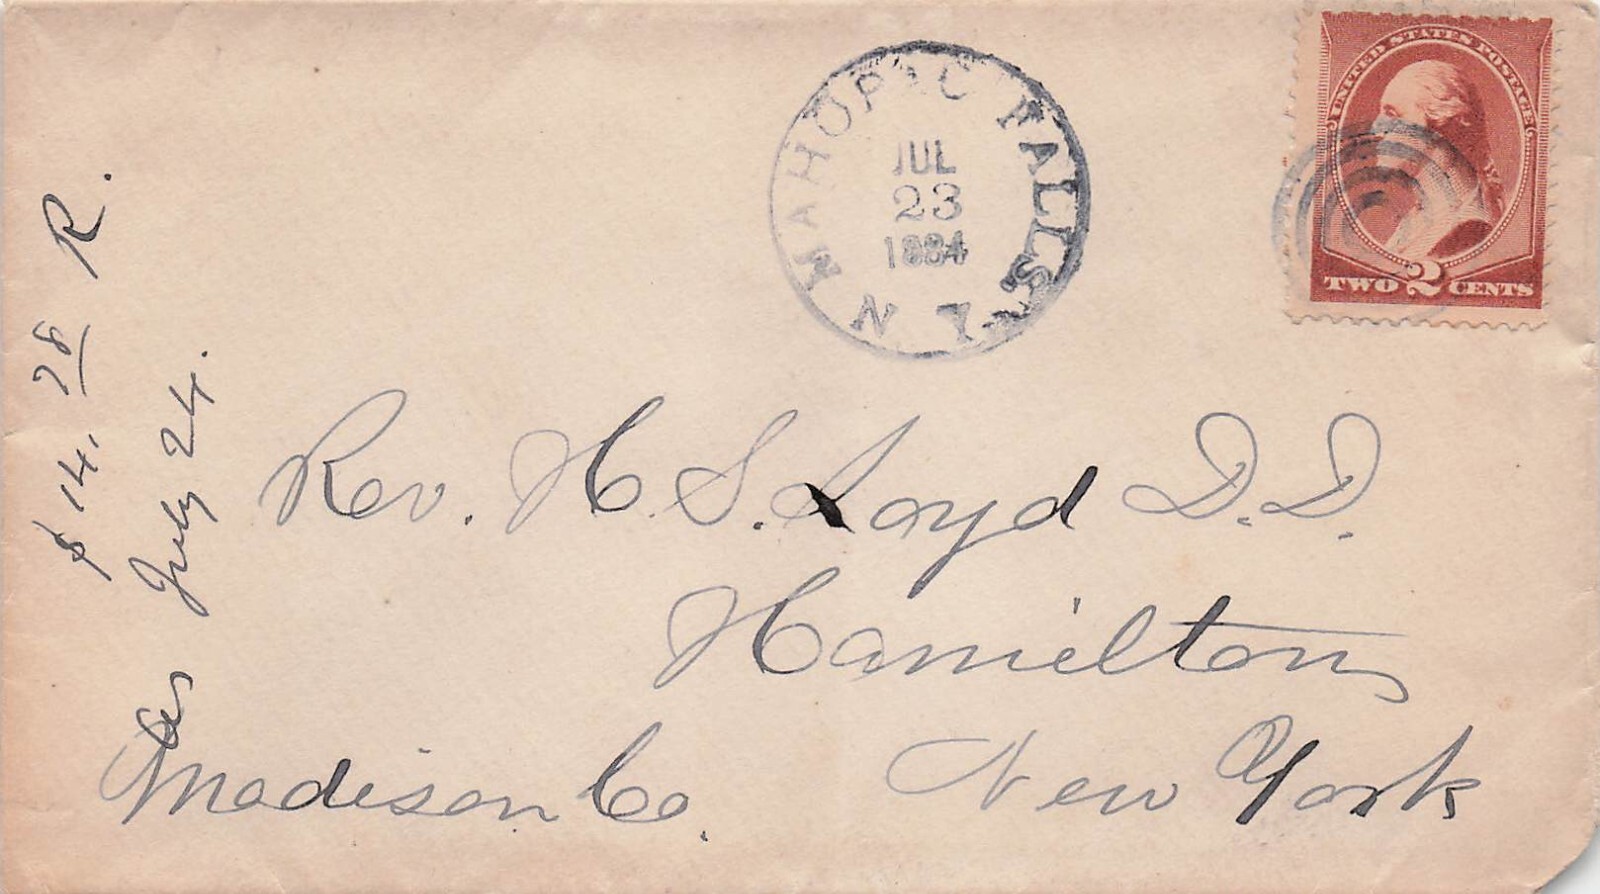 MAHOPAC FALLS
JUL
23
1884
N.Y.
UNITED STATES POSTAGE
TWO 2 CENTS
Rev. H. S. Loyd D.D.
Hamilton
Madison Co. New York
$14.78 R.
July 24.